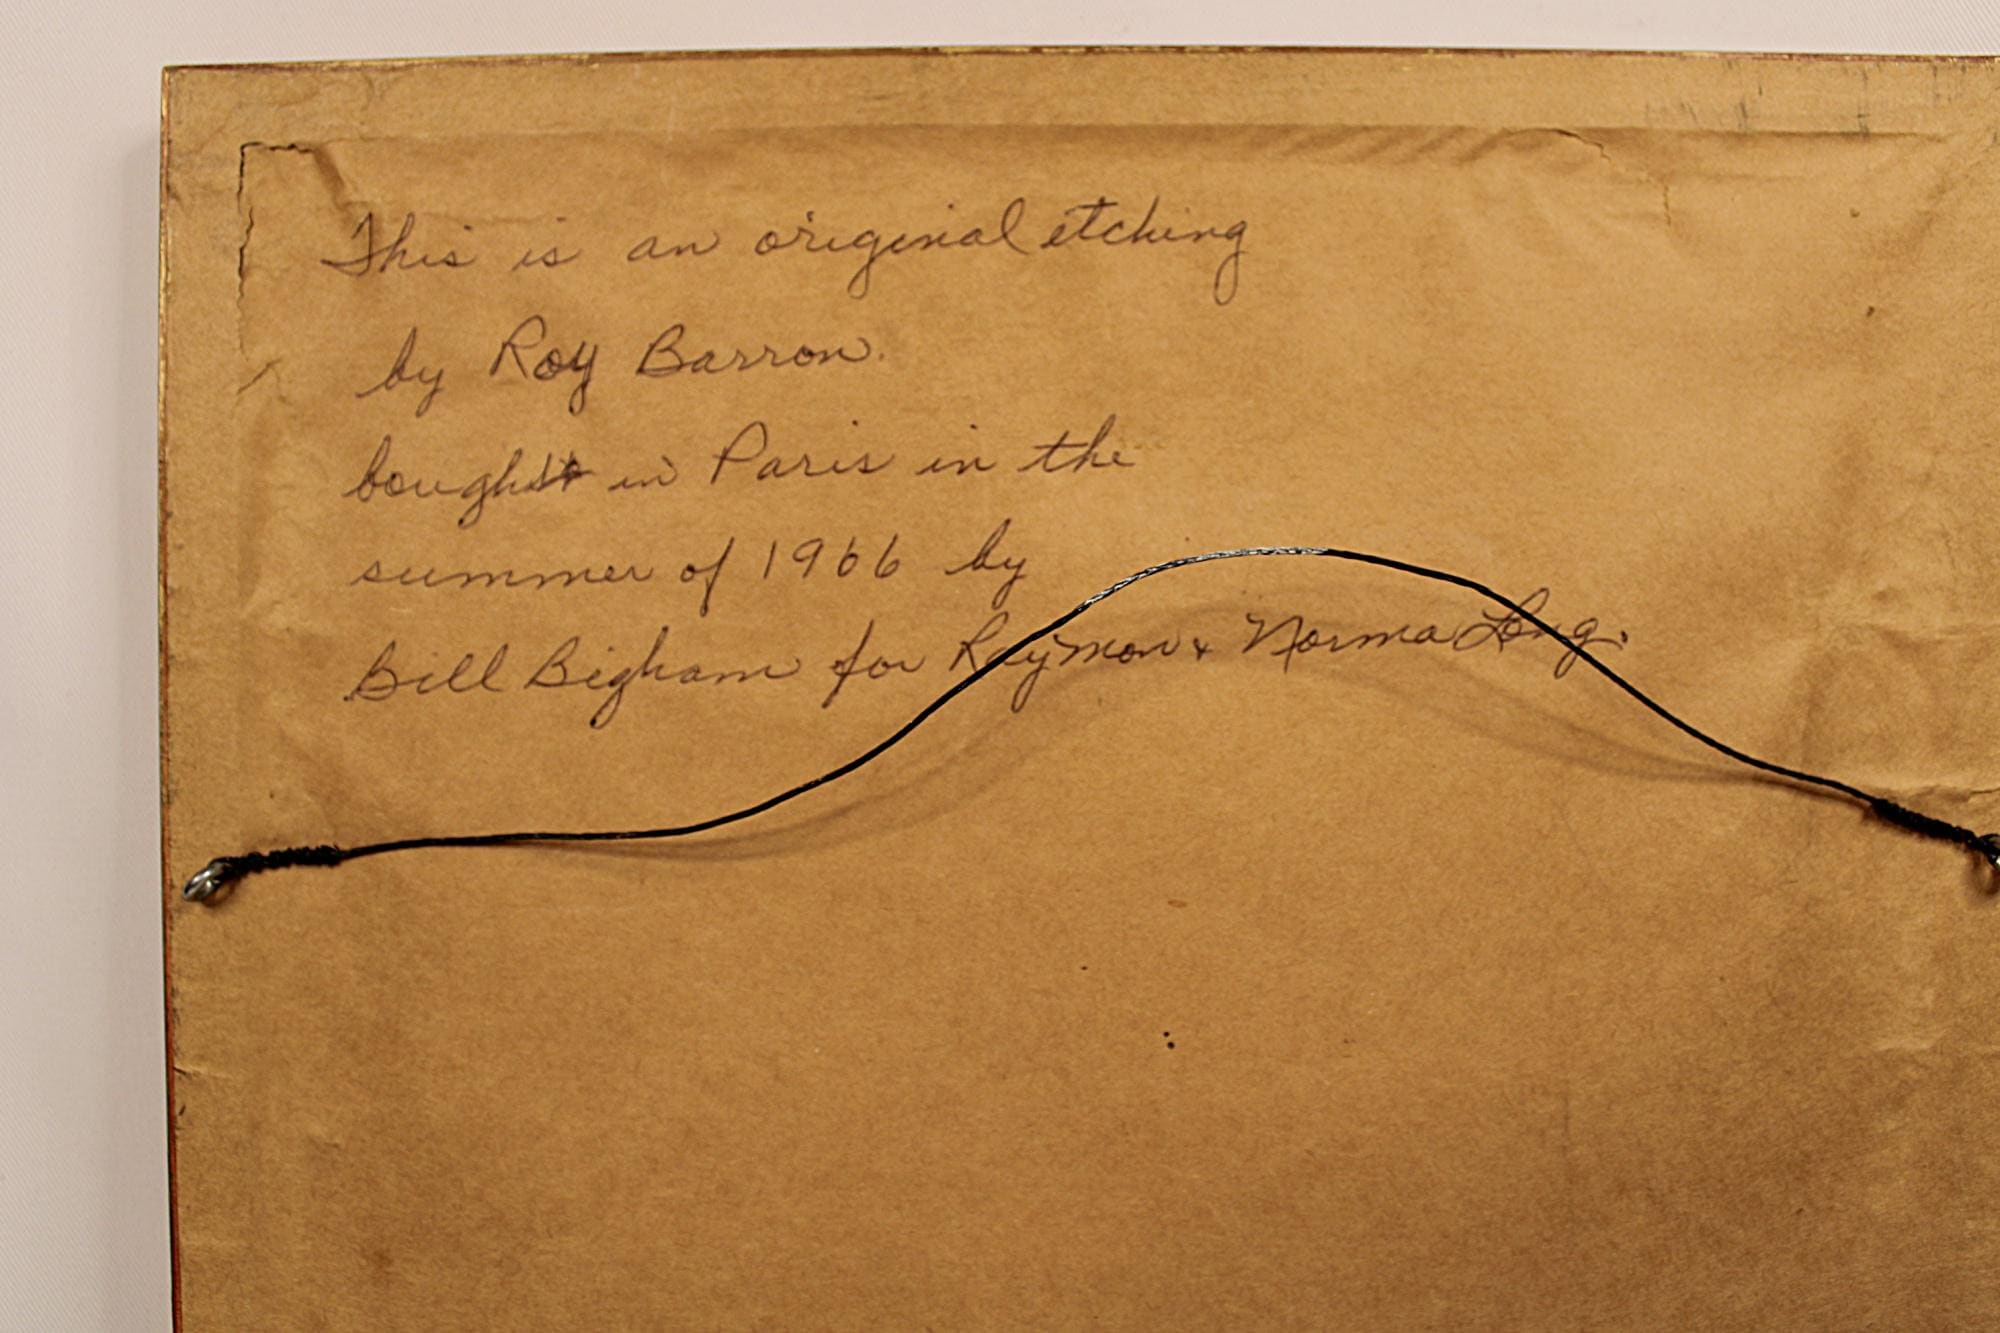 This is an original etching
by Roy Barron.
bought in Paris in the
summer of 1966 by
Bill Bigham for Raymon & Norma Long.